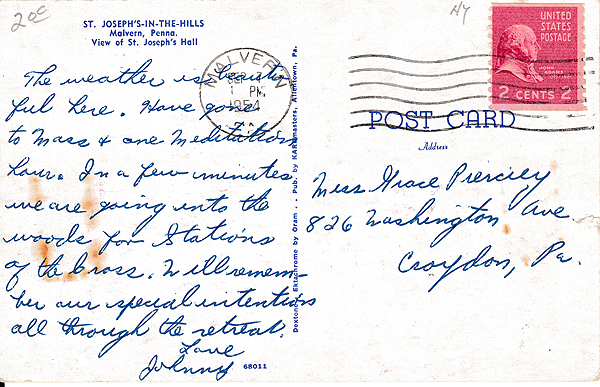 20¢
ST. JOSEPH'S-IN-THE-HILLS
Malvern, Penna.
View of St. Joseph's Hall
The weather is beauti
ful here. Have gone
to Mass & one Meditation
hour. In a few minutes
we are going into the
woods for Stations
of the Cross. Will remem
ber our special intentions
all through the retreat.
Love
Johnny
68011
MALVERN
SEP
PM
1954
PA.
Dextone Ektachrome by Gram . . Pub. by KARDmasters, Allentown, Pa.
UNITED
STATES
POSTAGE
JOHN
ADAMS
2 CENTS 2
POST CARD
Address
Miss Grace Piercey
826 Washington Ave.
Croydon, Pa.